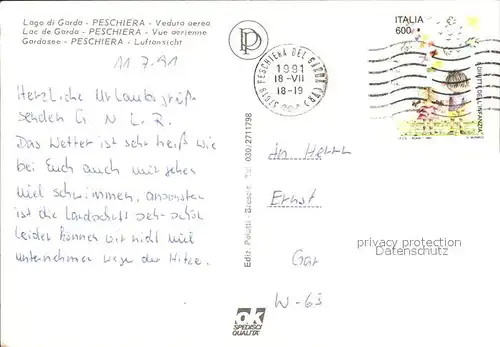 Lago di Garda - PESCHIERA - Veduta aerea
Lac de Garda - PESCHIERA - Vue aerienne
Gardasee - PESCHIERA - Luftansicht
11.7.91
Herzliche Urlaubsgrüße
senden G N L R.
Das Wetter ist sehr heiß wie
bei Euch auch wir gehen
viel schwimmen, ansonsten
ist die Landschaft sehr schön
leider können wir nicht viel
unternehmen wege der Hitze.
Ediz. Polotti - Brescia Tel. 030/2711798
ok
SPEDISCI
QUALITÀ
P
37019 PESCHIERA DEL GARDA (VR)
1991
18-VII
18-19
ITALIA
600
I DIRITTI DELL'INFANZIA
An Herrn
Ernst
privacy protection
Datenschutz
W-63